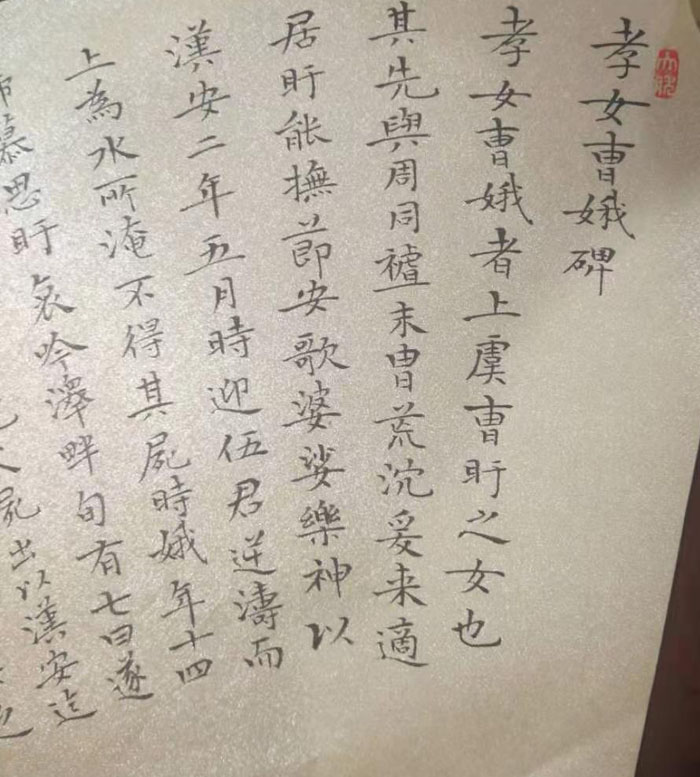 孝女曹娥碑
孝女曹娥者上虞曹盱之女也
其先與周同禇末胄荒沉爰来適
居盱能撫節安歌婆娑樂神以
漢安二年五月時迎伍君逆濤而
上為水所淹不得其屍時娥年十四
慕思盱哀吟澤畔旬有七日遂
屍出以漢安迄